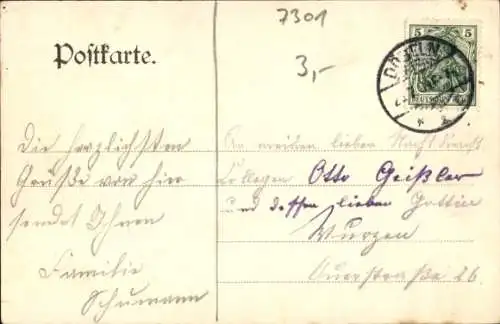 7301
Postkarte.
3,-
5 5
DÖBELN
Die herzlichsten
Grüße von hier
sendet Ihnen
Familie
Schumann
An meinen lieben
Collegen Otto Geißler
und dessen lieben Gattin
Wurzen
Querstraße 26